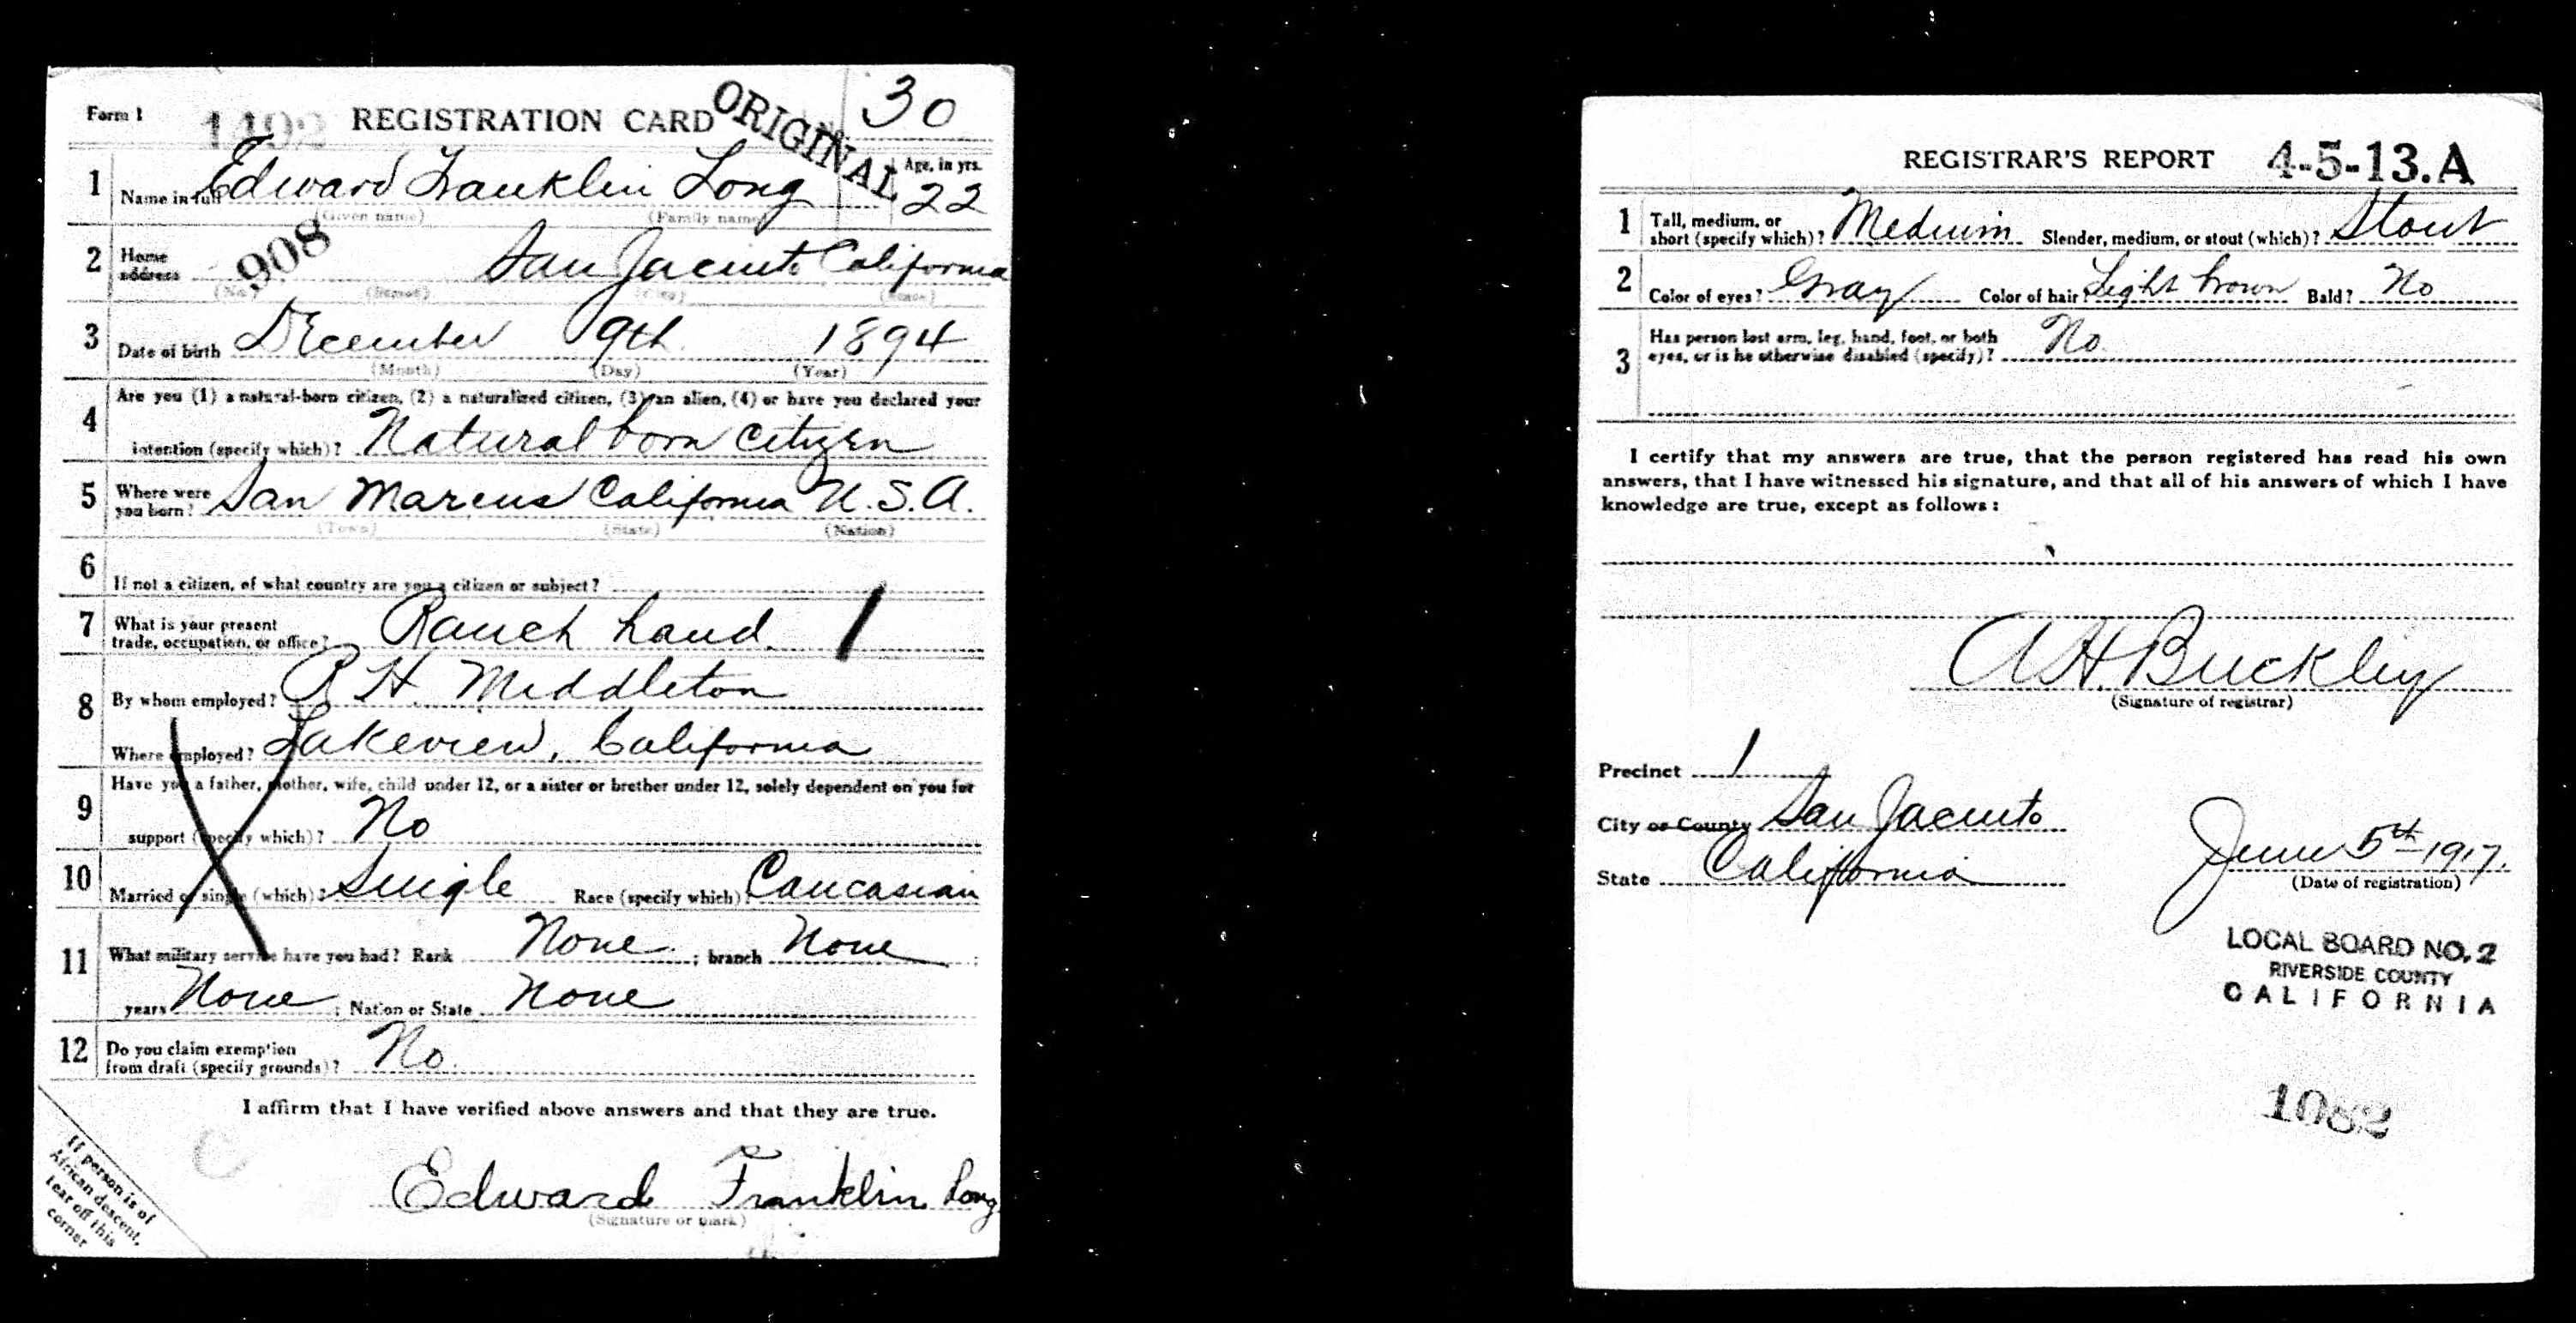 Form 1 1492 REGISTRATION CARD ORIGINAL 30
1 Name in full Edward Franklin Long Age, in yrs. 22
(Given name) (Family name)
2 Home address 908 San Jacinto California
(No.) (Street) (City) (State)
3 Date of birth December 9th 1894
(Month) (Day) (Year)
4 Are you (1) a natural-born citizen, (2) a naturalized citizen, (3) an alien, (4) or have you declared your
intention (specify which)? Natural born citizen
5 Where were you born? San Marcus California U.S.A.
(Town) (State) (Nation)
6 If not a citizen, of what country are you a citizen or subject?
7 What is your present
trade, occupation, or office? Ranch hand 1
8 By whom employed? R H Middleton
Where employed? Lakeview, California
9 Have you a father, mother, wife, child under 12, or a sister or brother under 12, solely dependent on you for
support (specify which)? No
10 Married or single (which)? Single Race (specify which)? Caucasian
11 What military service have you had? Rank None ; branch None ;
years None ; Nation or State None
12 Do you claim exemption
from draft (specify grounds)? No.
I affirm that I have verified above answers and that they are true.
Edward Franklin Long
(Signature or mark)
If person is of
African descent,
tear off this
corner
REGISTRAR'S REPORT 4-5-13.A
1 Tall, medium, or
short (specify which)? Medium Slender, medium, or stout (which)? Stout
2 Color of eyes? Gray Color of hair? Light brown Bald? No
3 Has person lost arm, leg, hand, foot, or both
eyes, or is he otherwise disabled (specify)? No.
I certify that my answers are true, that the person registered has read his own
answers, that I have witnessed his signature, and that all of his answers of which I have
knowledge are true, except as follows:
A H. Buckley
(Signature of registrar)
Precinct 1
City or County San Jacinto
State California June 5th 1917.
(Date of registration)
LOCAL BOARD NO. 2
RIVERSIDE COUNTY
CALIFORNIA
1082